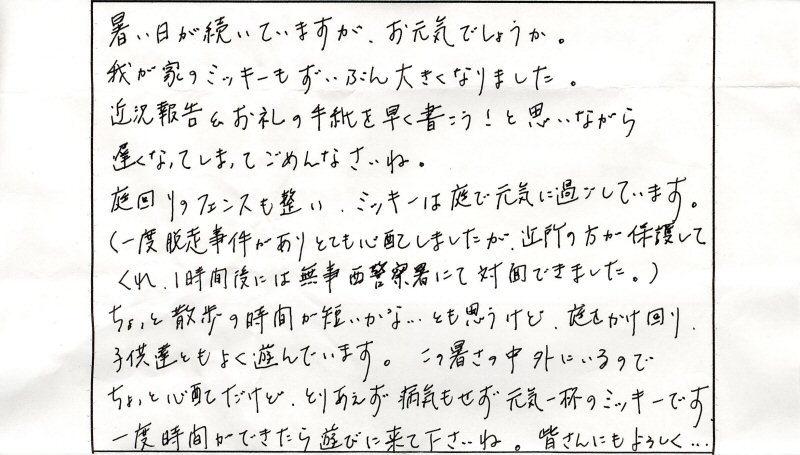 暑い日が続いていますが、お元気でしょうか。
我が家のミッキーもずいぶん大きくなりました。
近況報告&お礼の手紙を早く書こう!と思いながら
遅くなってしまってごめんなさいね。
庭回りのフェンスも整い、ミッキーは庭で元気に過ごしています。
(一度脱走事件がありとても心配しましたが、近所の方が保護して
くれ、1時間後には無事西警察署にて対面できました。)
ちょっと散歩の時間が短いかな…とも思うけど、庭をかけ回り、
子供達ともよく遊んでいます。この暑さの中外にいるので
ちょっと心配だけど、とりあえず病気もせず元気一杯のミッキーです
一度時間ができたら遊びに来て下さいね。皆さんにもよろしく…